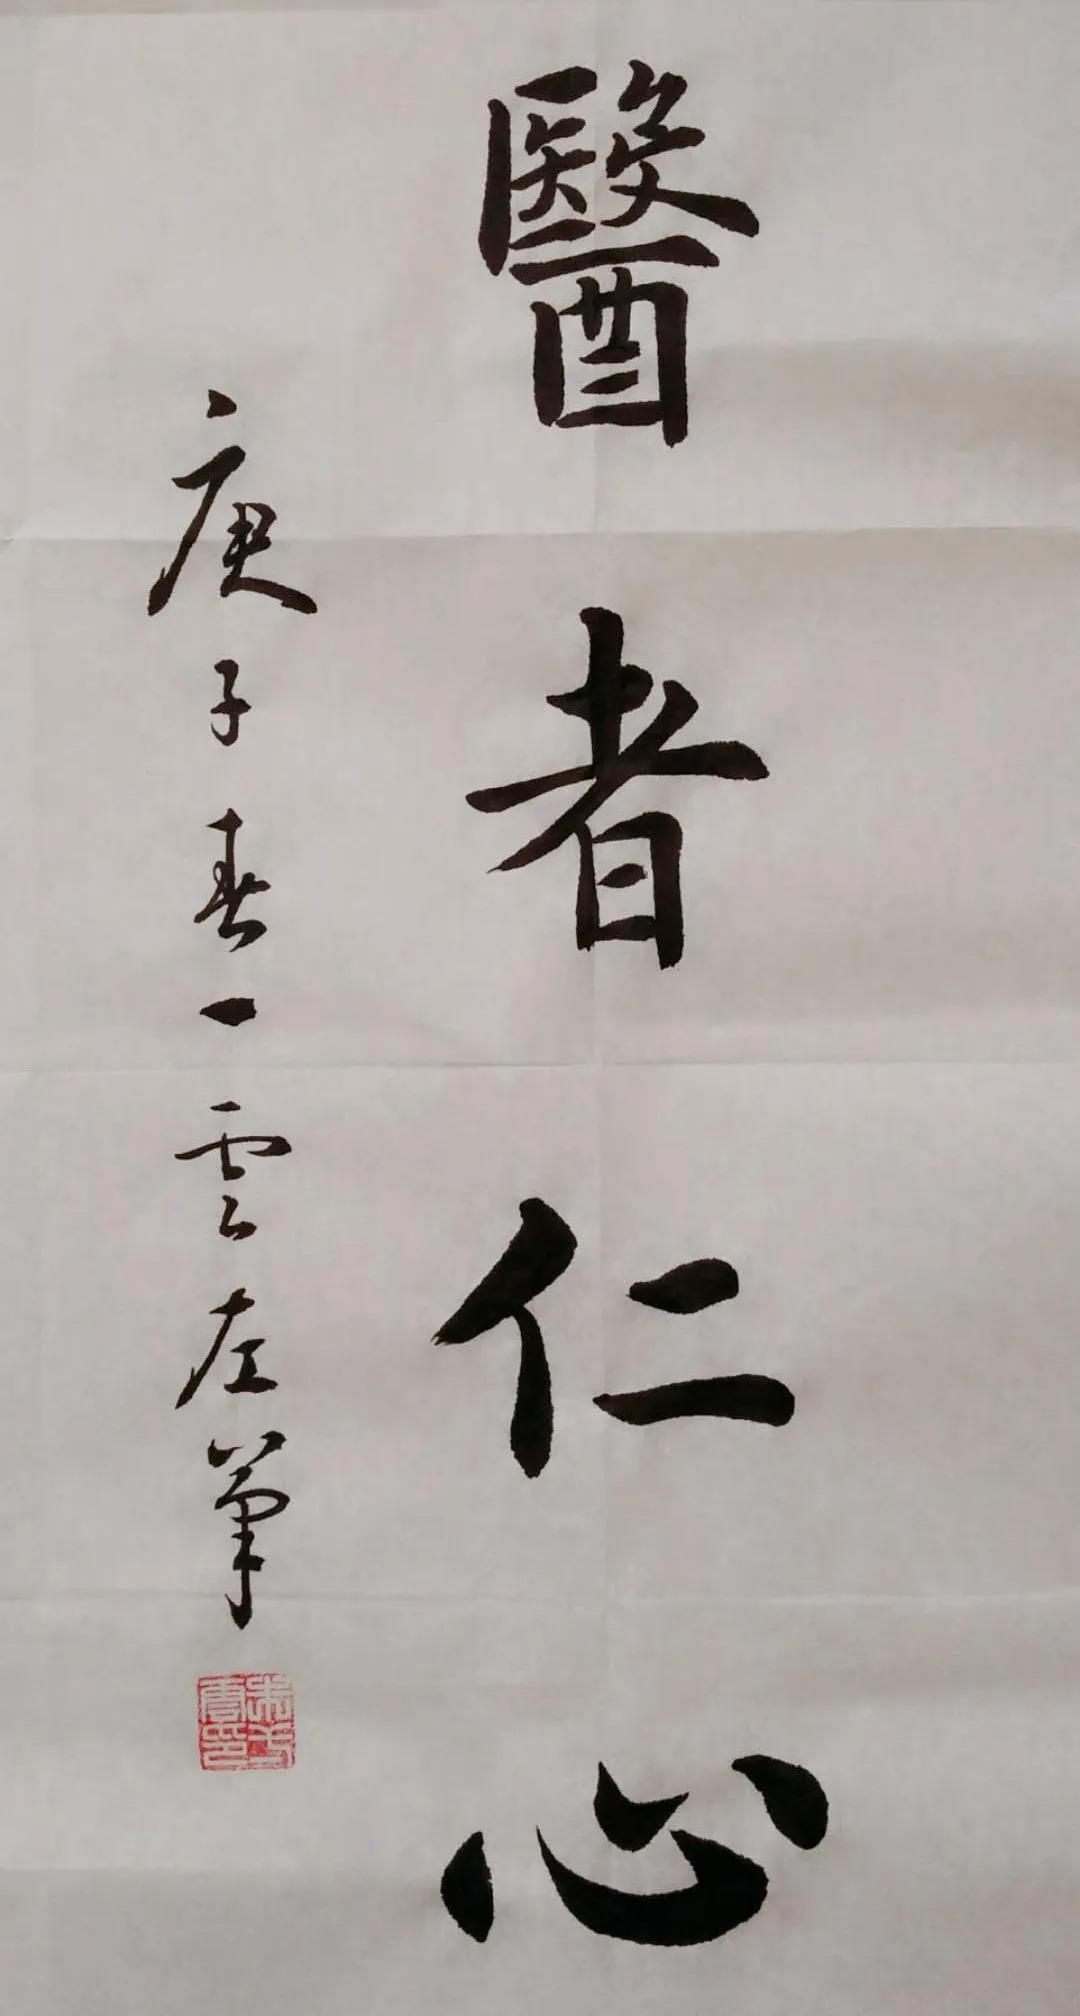 醫者仁心
庚子春一雲左筆